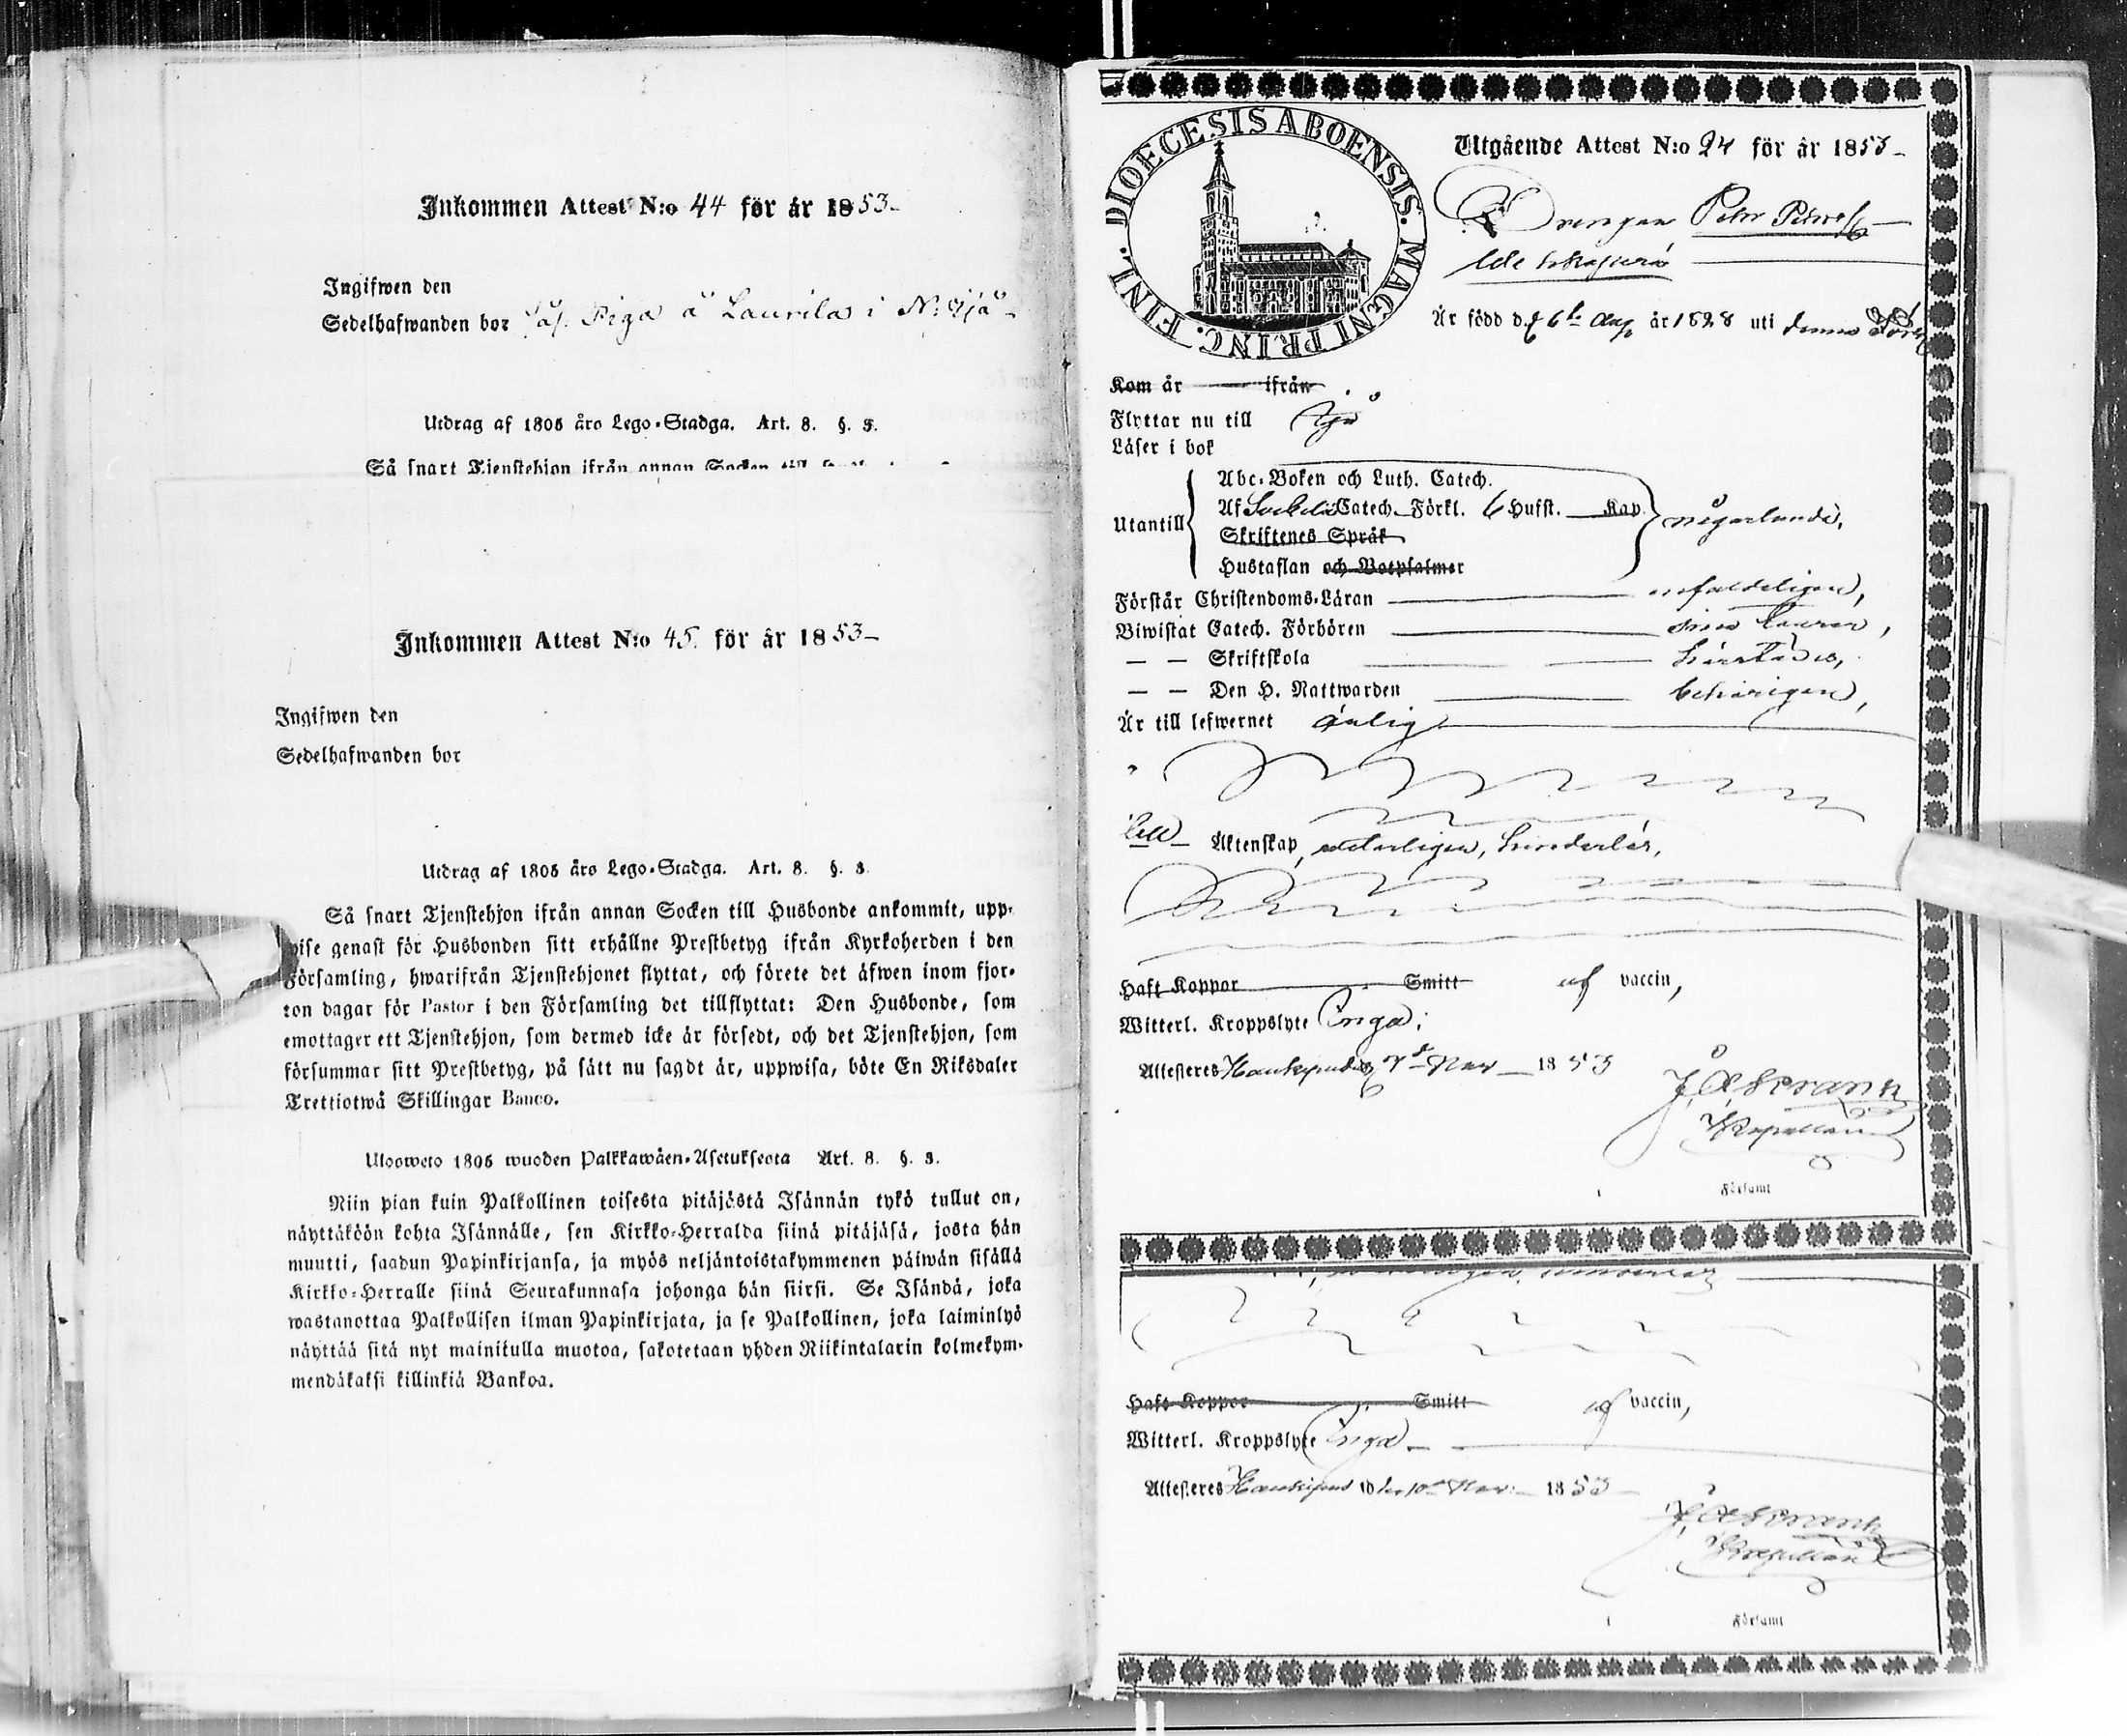 Inkommen Attest N:o 44 för år 1853
Ingifwen den
Sedelhafwanden bor sås. Piga å Laurila i N:
Utdrag af 1805 års Lego-Stadga. Art. 8. §. 3.
Så snart Tjenstehjon ifrån annan Socken till
Inkommen Attest N:o 45 för år 1853
Ingifwen den
Sedelhafwanden bor
Utdrag af 1805 års Lego-Stadga. Art. 8. §. 3.
Så snart Tjenstehjon ifrån annan Socken till Husbonde ankommit, upp-
wise genast för Husbonden sitt erhållne Prestbetyg ifrån Kyrkoherden i den
Församling, hwarifrån Tjenstehjonet flyttat, och förete det äfwen inom fjor-
ton dagar för Pastor i den Församling det tillflyttat: Den Husbonde, som
emottager ett Tjenstehjon, som dermed icke är försedt, och det Tjenstehjon, som
försummar sitt Prestbetyg, på sätt nu sagdt är, uppwisa, böte En Riksdaler
Trettiotwå Skillingar Banco.
Uloсweto 1805 wuoden Palkkawäen-Asetuksesta Art. 8. §. 3.
Niin pian kuin Palkollinen toisesta pitäjästä Isännän tykö tullut on,
näyttäköön kohta Isännälle, sen Kirkko-Herralda siinä pitäjäsä, josta hän
muutti, saadun Papinkirjansa, ja myös neljäntoistakymmenen päiwän sisällä
Kirkko-Herralle siinä Seurakunnasa johonga hän siirsi. Se Isändä, joka
wastanottaa Palkollisen ilman Papinkirjata, ja se Palkollinen, joka laiminlyö
näyttää sitä nyt mainitulla muotoa, sakotetaan yhden Riikintalarin kolmekym-
mendäkaksi killinkiä Bankoa.
DIOECESIS ABOENSIS. MAGNI PRINC. FINL.
Utgående Attest N:o 24 för år 1853
Drengen Petter
Är född d. 6 Aug år 1828 uti denna
Kom år ifrån
Flyttar nu till
Läser i bok
Utantill
Abc-Boken och Luth. Catech.
Af Catech. Förkl. 6 Hufst. Kap.
någorlunda,
Skriftenes Språk
Hustaflan och Botpsalmer
Förstår Christendoms-Läran enfaldeligen,
Biwistat Catech. Förhören
— — Skriftskola härstädes,
— — Den H. Nattwarden behörigen,
Är till lefwernet ärlig
till Äktenskap, hinderlös,
Haft Koppor Smitt af vaccin,
Witterl. Kroppslyte Inga;
Attesteres 7 Nov 1853
J. Åkerrank
Kapellan
Församl
Haft Koppor Smitt af vaccin,
Witterl. Kroppslyte Inga
Attesteres den 10 Nov 1853
J. Åkerrank
Kapellan
i Församl